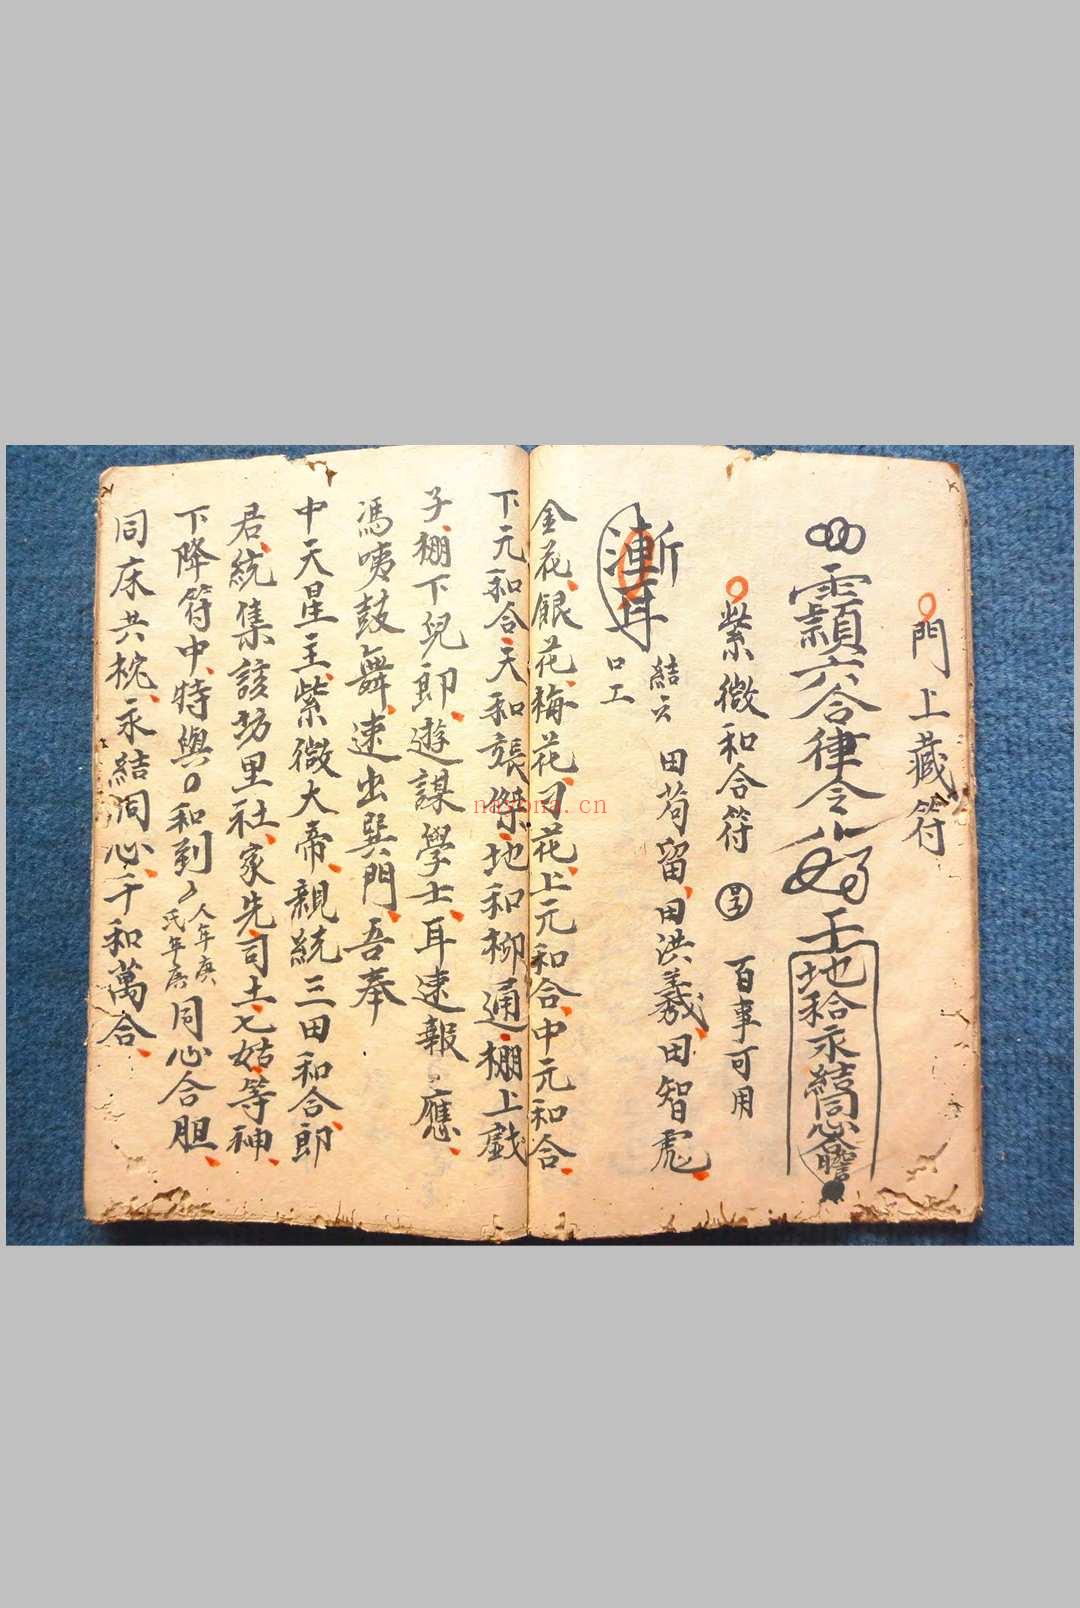 門上藏符
六合律令 好 土地 永結同心合
紫微和合符 百事可用
結云 田苟留田洪義田智彪
漸耳
口工
金花銀花梅花司花上元和合中元和合
下元和合天和張傑地和柳通棚上戲
子棚下兒郎遊謀學士耳速報應
馮咦鼓舞速出巽門吾奉
中天星主紫微大帝親統三田和合郎
君統集該坊里社家先司土七姑等神
下降符中特與 和到 人年庚 氏年庚 同心合胆
同床共枕永結同心千和萬合
nayona.cn